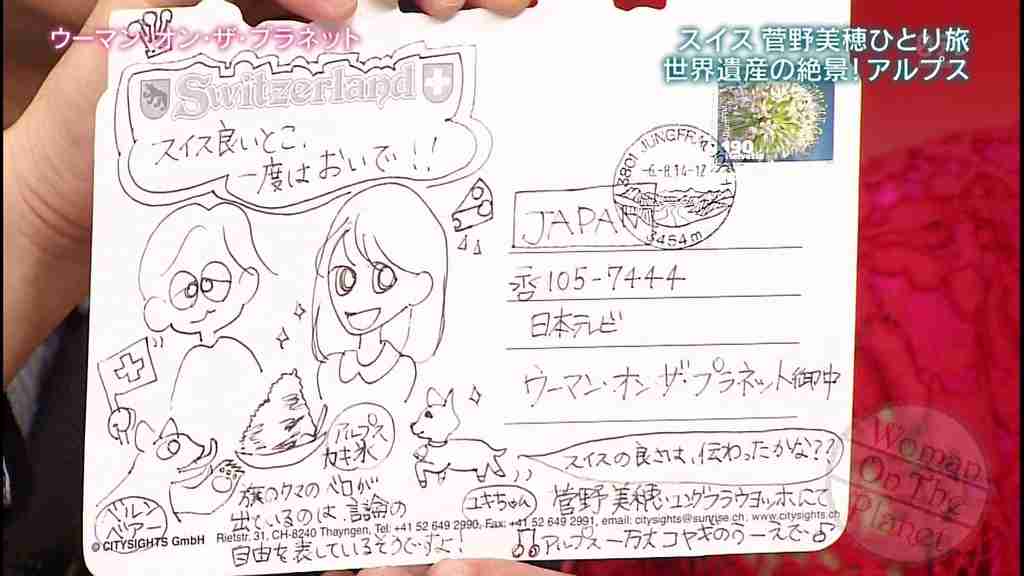 ウーマン・オン・ザ・プラネット
スイス 菅野美穂ひとり旅
世界遺産の絶景!アルプス
Switzerland
スイス良いとこ、
一度はおいで!!
190
3801 JUNGFRAU
-6.-8.14-12
3454m
JAPAN
〒105-7444
日本テレビ
ウーマン・オン ザ・プラネット御中
アルプス
カキ氷
スイスの良さは、伝わったかな??
ベルン
ベアー
旗のクマのベロが
出ているのは 言論の
自由を表しているそうですよ!
ユキちゃん
菅野美穂・ユングフラウヨッホにて
アルプス一万尺コヤギのうーえで♪
© CITYSIGHTS GmbH
Rietstr. 31, CH-8240 Thayngen, Tel: +41 52 649 2990, Fax: +41 52 649 2991, email: citysights@sunrise.ch, www.citysights.ch
Woman
On The
Planet